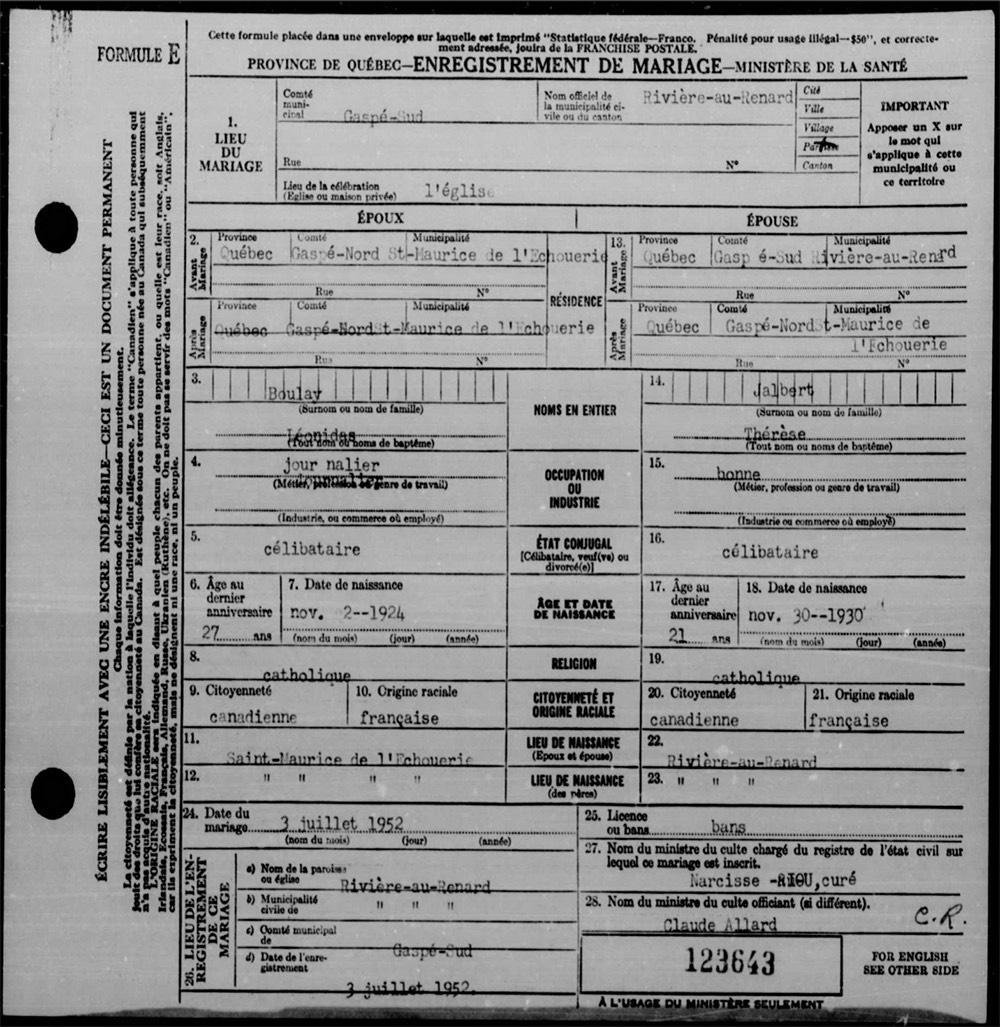 Cette formule placée dans une enveloppe sur laquelle est imprimé "Statistique fédérale—Franco. Pénalité pour usage illégal—$50", et correcte-
ment adressée, jouira de la FRANCHISE POSTALE.
FORMULE E
PROVINCE DE QUÉBEC—ENREGISTREMENT DE MARIAGE—MINISTÈRE DE LA SANTÉ
ÉCRIRE LISIBLEMENT AVEC UNE ENCRE INDÉLÉBILE—CECI EST UN DOCUMENT PERMANENT
Chaque information doit être donnée minutieusement.
La citoyenneté est définie par la nation à laquelle l'individu doit allégeance. Le terme "Canadien" s'applique à toute personne qui
jouit des droits que lui confère sa citoyenneté au Canada. Est désignée sous ce terme toute personne née au Canada qui subséquemment
n'a pas acquis d'autre nationalité.
L'ORIGINE RACIALE sera indiquée en disant à quel peuple chacun des parents appartient, ou quelle est leur race, soit Anglais,
Irlandais, Ecossais, Français, Allemand, Russe, Ukranien (Ruthène), etc. On ne doit pas se servir des mots "Canadien" ou "Américain",
car ils expriment la citoyenneté, mais ne désignent ni une race, ni un peuple.
1.
LIEU
DU
MARIAGE
Comté
muni-
cipal Gaspé-Sud
Nom officiel de
la municipalité ci-
vile ou du canton
Rivière-au-Renard
Cité
Ville
Village
Canton
Rue
N°
Lieu de la célébration
(Eglise ou maison privée) l'église
IMPORTANT
Apposer un X sur
le mot qui
s'applique à cette
municipalité ou
ce territoire
ÉPOUX
ÉPOUSE
2. Avant Mariage
Province Comté Municipalité
Québec Gaspé-Nord St-Maurice de l'Echouerie
Rue N°
RÉSIDENCE
13. Avant Mariage
Province Comté Municipalité
Québec Gasp é-Sud Rivière-au-Renard
Rue N°
Après Mariage
Province Comté Municipalité
Québec Gaspé-Nord St-Maurice de l'Echouerie
Rue N°
Après Mariage
Province Comté Municipalité
Québec Gaspé-Nord St-Maurice de
l'Echouerie
Rue N°
3.
Boulay
(Surnom ou nom de famille)
Léonidas
(Tout nom ou noms de baptême)
NOMS EN ENTIER
14.
Jalbert
(Surnom ou nom de famille)
Thérèse
(Tout nom ou noms de baptême)
4.
jour nalier
Journalier
(Métier, profession ou genre de travail)
(Industrie, ou commerce où employé)
OCCUPATION
OU
INDUSTRIE
15.
bonne
(Métier, profession ou genre de travail)
(Industrie ou commerce où employé)
5.
célibataire
ÉTAT CONJUGAL
[Célibataire, veuf(ve) ou
divorcé(e)]
16.
célibataire
6. Âge au
dernier
anniversaire
27 ans
7. Date de naissance
nov. 2--1924
(nom du mois) (jour) (année)
ÂGE ET DATE
DE NAISSANCE
17. Âge au
dernier
anniversaire
21 ans
18. Date de naissance
nov. 30--1930
(nom du mois) (jour) (année)
8.
catholique
RELIGION
19.
catholique
9. Citoyenneté
canadienne
10. Origine raciale
française
CITOYENNETÉ ET
ORIGINE RACIALE
20. Citoyenneté
canadienne
21. Origine raciale
française
11.
Saint-Maurice de l'Echouerie
LIEU DE NAISSANCE
(Epoux et épouse)
22.
Rivière-au-Renard
12. " " " "
LIEU DE NAISSANCE
(des pères)
23. " " "
24. Date du
mariage 3 juillet 1952
(nom du mois) (jour) (année)
25. Licence
ou bans bans
26. LIEU DE L'EN-
REGISTREMENT
DE CE
MARIAGE
a) Nom de la paroisse
ou église Rivière-au-Renard
b) Municipalité
civile de " " "
c) Comté municipal
de Gaspé-Sud
d) Date de l'enre-
gistrement
3 juillet 1952.
27. Nom du ministre du culte chargé du registre de l'état civil sur
lequel ce mariage est inscrit.
Narcisse -RIOU, curé
28. Nom du ministre du culte officiant (si différent).
Claude Allard
C.R.
123643
À L'USAGE DU MINISTÈRE SEULEMENT
FOR ENGLISH
SEE OTHER SIDE